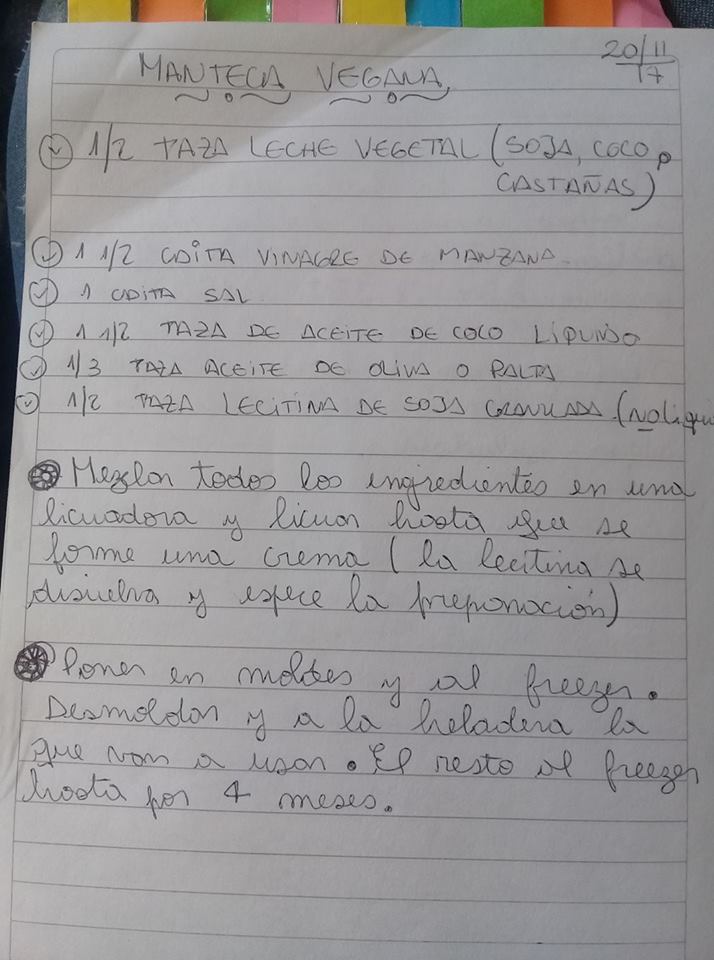 20/11
17
MANTECA VEGANA
1/2 TAZA LECHE VEGETAL (SOJA, COCO, O
CASTAÑAS)
1 1/2 CDITA VINAGRE DE MANZANA.
1 CDITA SAL
1 1/2 TAZA DE ACEITE DE COCO LÍQUIDO
1/3 TAZA ACEITE DE OLIVA O PALTA
1/2 TAZA LECITINA DE SOJA GRANULADA (NO liqui
Mezclar todos los ingredientes en una
licuadora y licuar hasta que se
forme una crema (la lecitina se
disuelva y espece la preparación)
Poner en moldes y al freezer.
Desmoldar y a la heladera la
que van a usar. El resto al freezer
hasta por 4 meses.